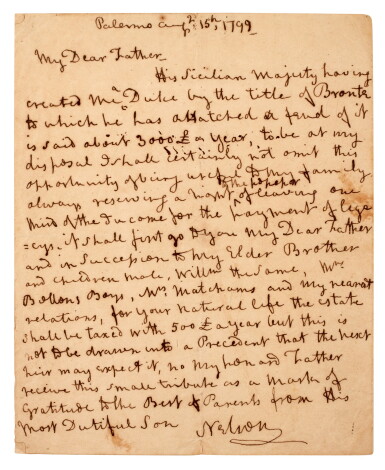 Palermo Augt. 15th, 1799
My Dear Father
His Sicilian Majesty having
created Me a Duke by the title of Bronte
to which he has attatched a feud of it
is said about 3000 £ a year, to be at my
disposal I shall certainly not omit this
opportunity of being usefull to my family
always reserving a right to the possessor of leaving one
third of the Income for the payment of lega
=cys. it shall first go to you My Dear Father
and in Succession to My Elder Brother
and children male, Willm. the same, Mrs.
Boltons Boys, Mrs. Matchams and my nearest
relations, for your natural life the estate
shall be taxed with 500 £ a year but this is
not to be drawn into a Precedent that the next
heir may expect it, no my honord Father
receive this small tribute as a mark of
Gratitude to the Best of Parents from His
Most Dutiful Son Nelson